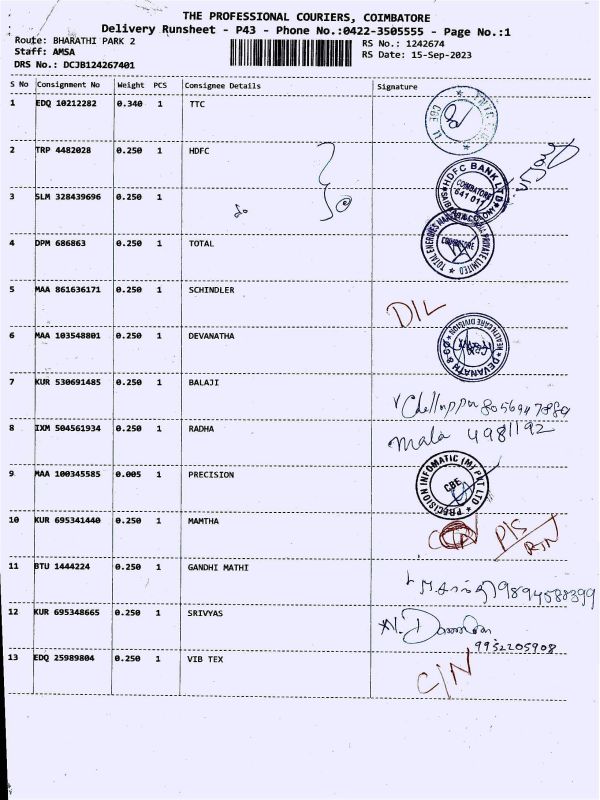 THE PROFESSIONAL COURIERS, COIMBATORE
Delivery Runsheet - P43 - Phone No.:0422-3505555 - Page No.:1
Route: BHARATHI PARK 2
Staff: AMSA
DRS No.: DCJB124267401
RS No.: 1242674
RS Date: 15-Sep-2023
S No Consignment No Weight PCS Consignee Details Signature
1 EDQ 10212282 0.340 1 TTC
2 TRP 4482028 0.250 1 HDFC
HDFC BANK LTD
COIMBATORE
641 011
3 SLM 328439696 0.250 1
do
4 DPM 686863 0.250 1 TOTAL
COIMBATORE
5 MAA 861636171 0.250 1 SCHINDLER D/L
6 MAA 103548801 0.250 1 DEVANATHA
HEALTH CARE DIVISION
7 KUR 530691485 0.250 1 BALAJI
8 IXM 504561934 0.250 1 RADHA
Mala 4981192
9 MAA 100345585 0.005 1 PRECISION
PRECISION INFOMATIC (M) PVT LTD
CBE
10 KUR 695341440 0.250 1 MAMTHA
11 BTU 1444224 0.250 1 GANDHI MATHI
9894588399
12 KUR 695348665 0.250 1 SRIVYAS
9952205908
13 EDQ 25989804 0.250 1 VIB TEX C/N